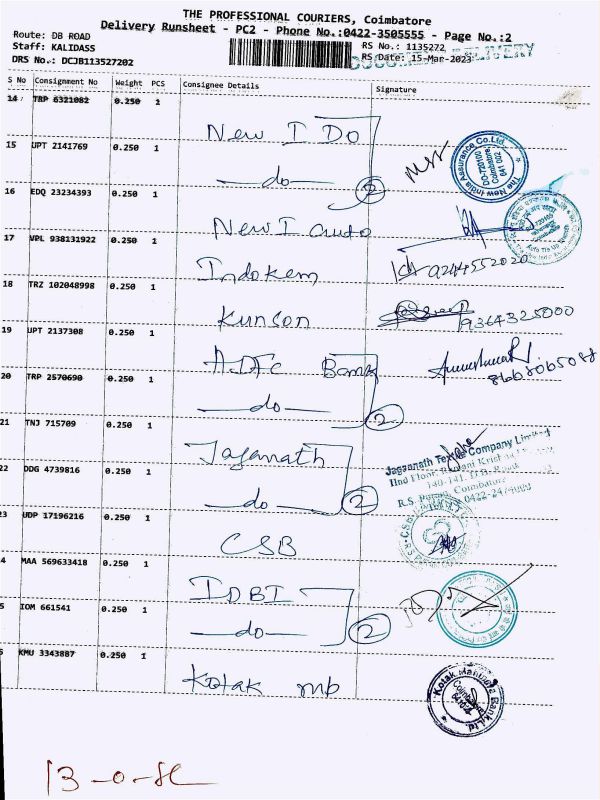 THE PROFESSIONAL COURIERS, Coimbatore
Delivery Runsheet - PC2 - Phone No.:0422-3505555 - Page No.:2
Route: DB ROAD
Staff: KALIDASS
DRS No.: DCJB113527202
RS No.: 1135272
RS Date: 15-Mar-2023
DELIVERY
S No Consignment No Weight PCS Consignee Details Signature
14 TRP 6321082 0.250 1 New I Do
15 UPT 2141769 0.250 1 do 2
The New India Assurance Co.Ltd.
DO-720100
Coimbatore
641 002
16 EDQ 23234393 0.250 1 New I auto
17 VPL 938131922 0.250 1 Indokem 9244552020
18 TRZ 102048998 0.250 1 Kunson 9364325000
19 UPT 2137308 0.250 1 HDFC Bank
8668065088
20 TRP 2570690 0.250 1 do 2
21 TNJ 715709 0.250 1 Jaganath
Jagannath Company Limited
IInd Floor,
130-141, D.B. Road
Coimbatore
R.S. 0422-2474000
22 DDG 4739816 0.250 1 do 2
23 UDP 17196216 0.250 1 CSB
4 MAA 569633418 0.250 1 IDBI
5 IOM 661541 0.250 1 do 2
KMU 3343887 0.250 1 Kotak mb
Kotak Mahindra Bank Ltd.
Coimbatore
13-0-sl